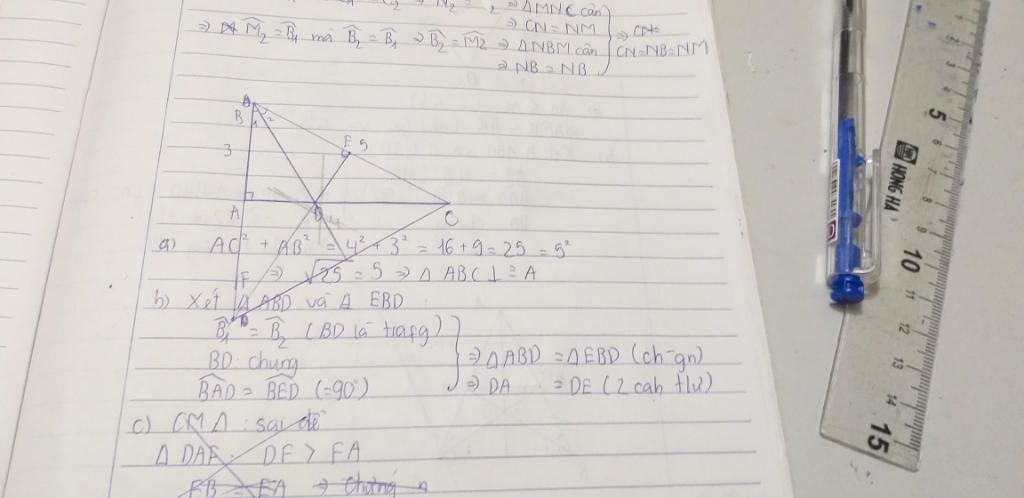 ⇒ ΔMNC cân
⇒ CN = NM
⇒ M̂₂ = B̂₁ mà B̂₂ = B̂₁ ⇒ B̂₂ = M̂₂ ⇒ ΔNBM cân
⇒ NB = NB
⇒ CN=
CN=NB=NM
B
1 2
3
E 5
A
D 4
C
F
a) AC² + AB² = 4² + 3² = 16 + 9 = 25 = 5²
⇒ √25 = 5 ⇒ Δ ABC ⊥ ≡ A
b) Xét Δ ABD và Δ EBD
B̂₁ = B̂₂ (BD là trafg)
BD chung
BAD = BED (=90°)
⇒ ΔABD = ΔEBD (ch-gn)
⇒ DA = DE (2 cah tư)
c) CM Δ : sai đề
Δ DAE DF > FA
FB = FA ⇒
HONG HA
5 6 7 8 9 10 11 12 13 14 15